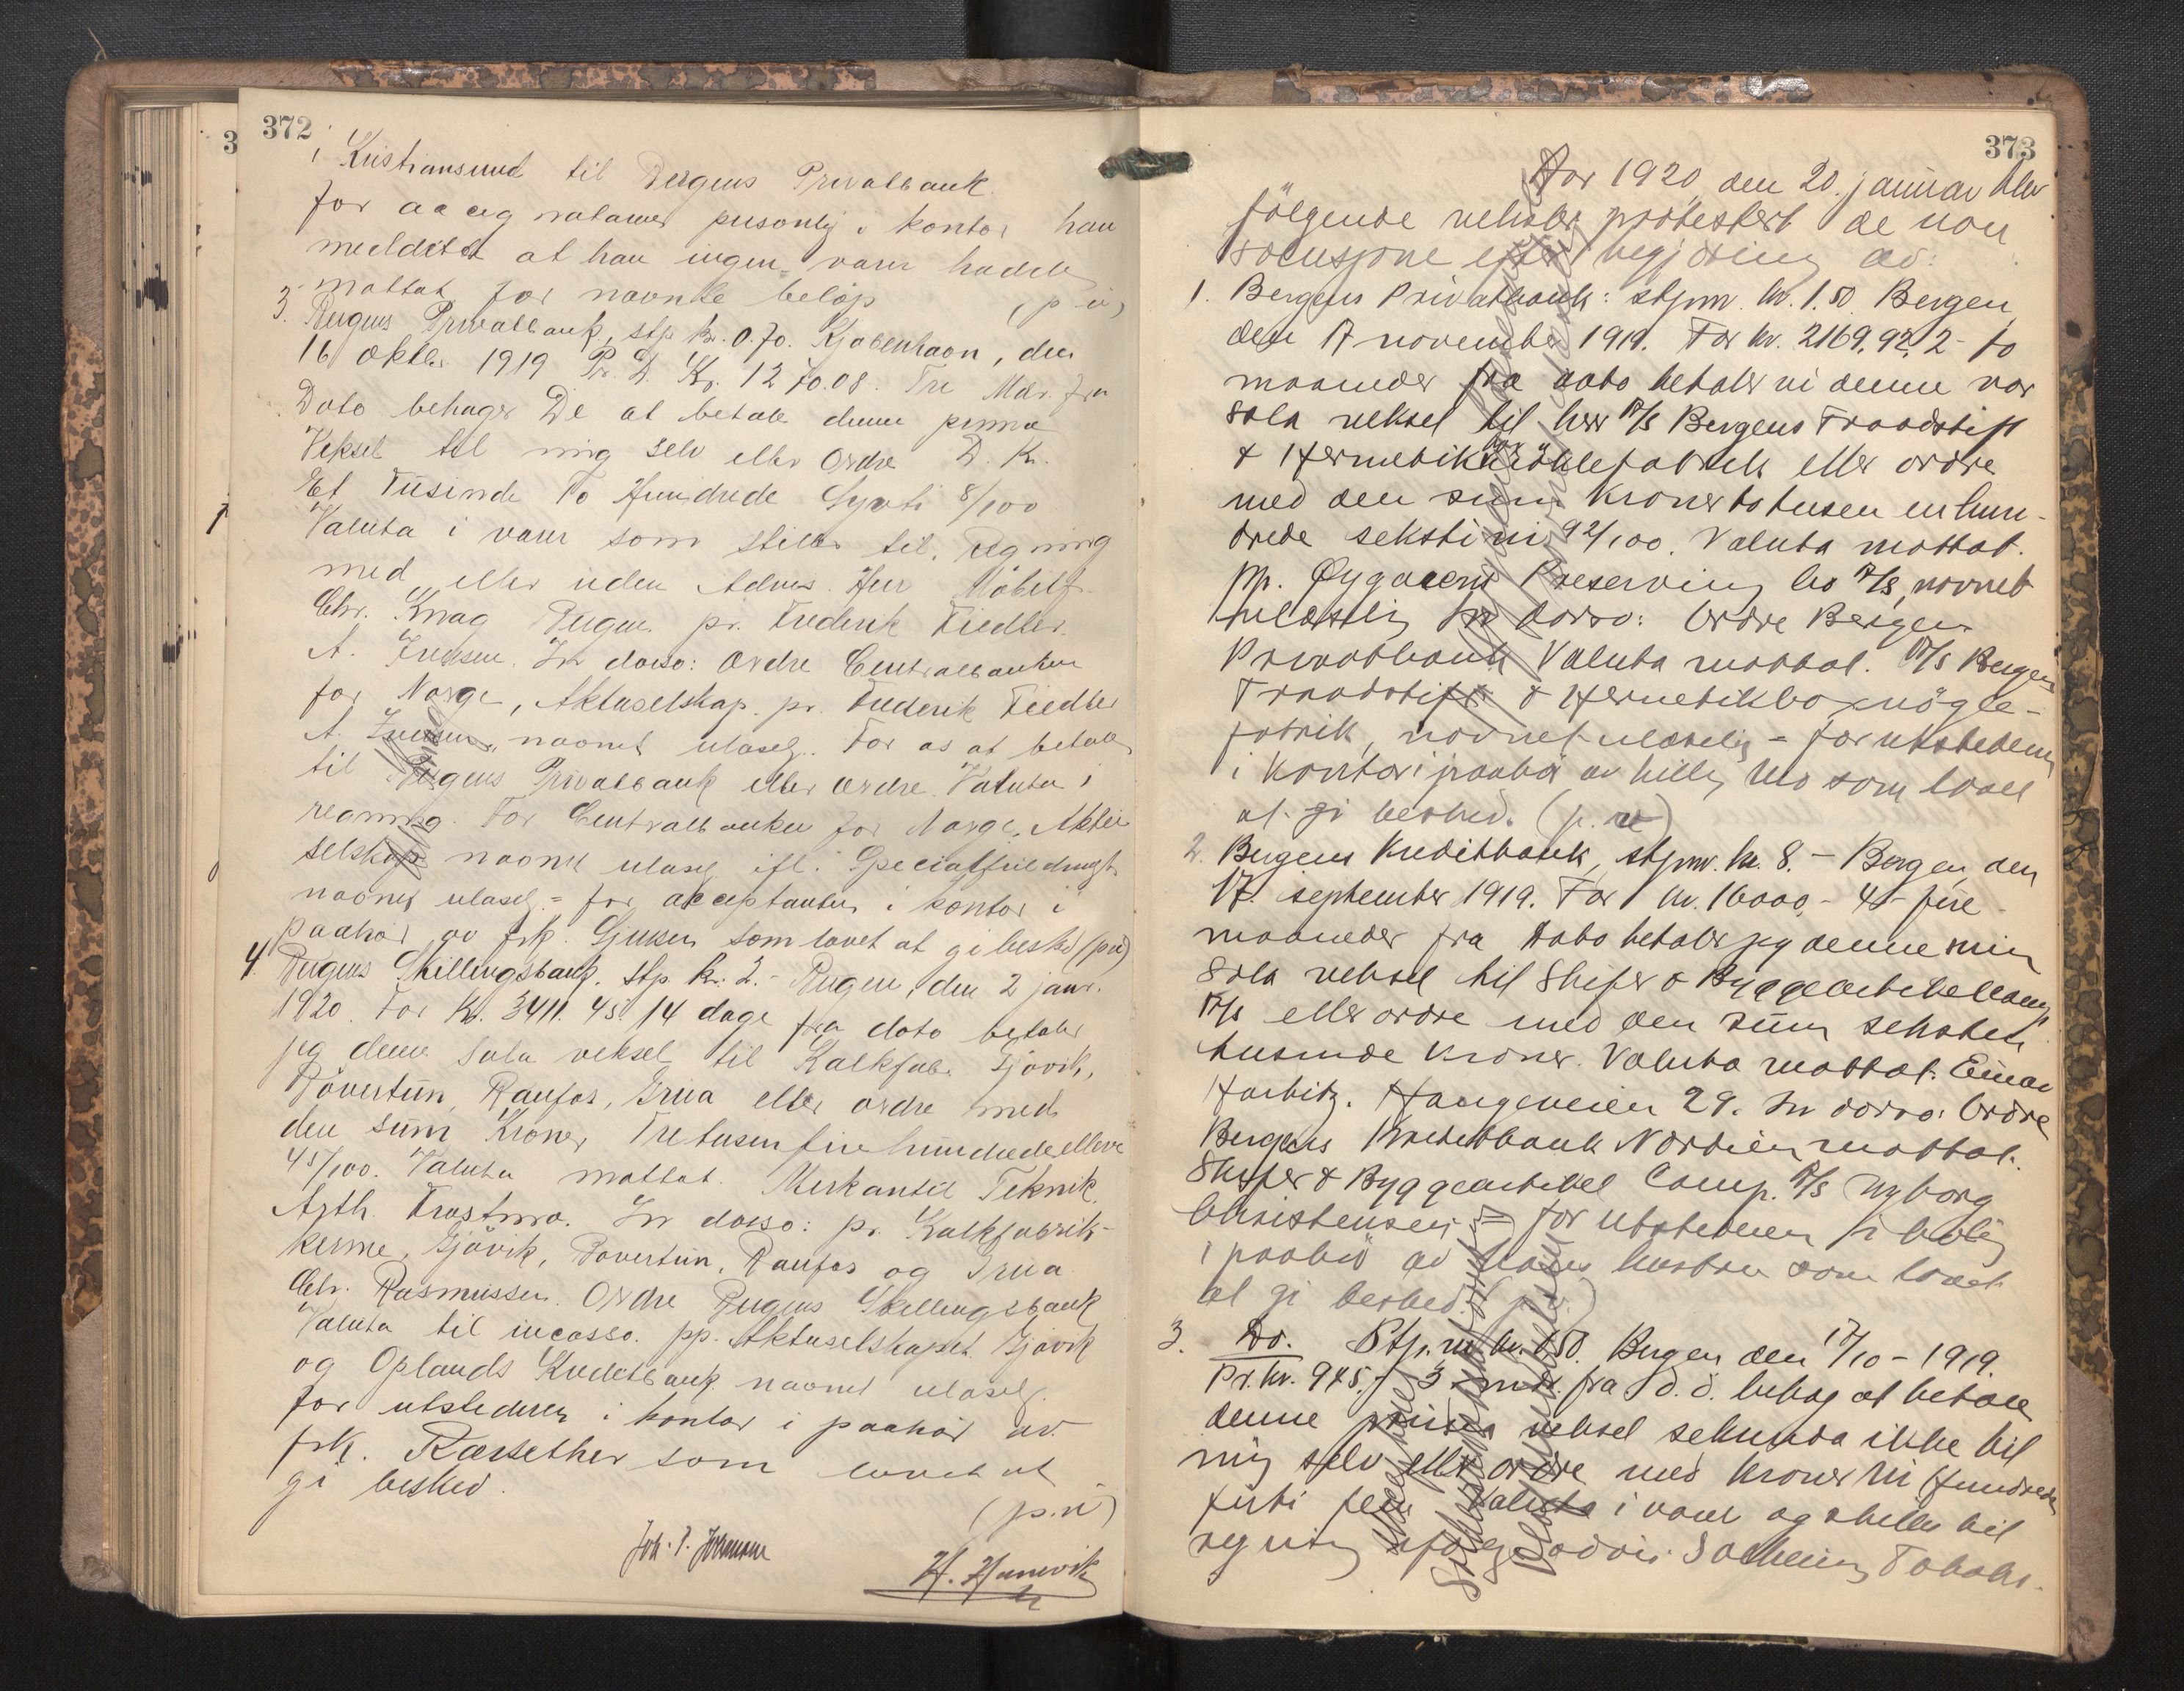 372
i Kristiansund til Bergens Privatbank
for aa eg notarnes personlig i kontor han
meddelte at han ingen varer hadde
mottat for nævnte beløp (p-u)
3. Bergens Privatbank, stp kr. 0.70. Kjøbenhavn, den
16 oktbr 1919 Pr. D. Kr. 1270.08. Tre Mdr. fra
Dato behager De at betale denne prima
Veksel til mig selv eller Ordre D. Kr.
Et Tusinde To Hundrede Sytti 8/100
Valuta i varer som stilles til Regning
med eller uden Advis. Herr Møbelf.
Chr. Krag Bergen pr. Frederik Fiedler
A. Iversen. In dorso: Ordre Centralbanken
for Norge, Aktieselskap. pr. Frederik Fiedler
A. Iversen, navnet ulæselg. For os at betale
til Bergens Privatbank eller ordre. Valuta i
regning. For Centralbanken for Norge, Aktie
selskap navnet ulæselg ifl. Specialfuldmagt
navnet ulæselg. = for acceptanten i kontor i
paahør av frk. Gjuksen som lovet at gi besked (pu)
4. Bergens Skillingsbank. Stp. kr. 2.- Bergen, den 2 janr.
1920. For Kr. 3411.45. 14 dage fra dato betaler
jeg denne sola veksel til Kalkfabr. Gjøvik,
Røvertun, Raufos, Grua eller ordre med
den sum Kroner Tretusenfirehundredeelleve
45/100. Valuta mottat. Merkantil Teknik.
Arth. Trostmo. In dorso: pr. Kalkfabrik-
kerne, Gjøvik, Røvertun, Raufos og Grua
Chr. Rasmussen. Ordre Bergens Skillingsbank
Valuta til incasso. pp. Aktieselskapet Gjøvik
og Oplands Kreditbank navnet ulæselg.
for utstederen i kontor i paahør av
frk. Rørsether som lovet at
gi besked.
(p.u)
Joh. P. Johnsen
H. Hanevik
373
Aar 1920 den 20. januar blev
følgende veksler protestert de non
solusjone efter begjæring av:
1. Bergens Privatbank: stpm. kr. 1.50 Bergen
den 17 november 1919. For kr. 2169.92. 2 - to
maaneder fra dato betaler vi denne vor
sola veksel til herr A/S Bergens Traadstift
& Hermetiknøklefabrik eller ordre
med den sum Kroner totusen enhun-
drede sekstini 92/100. Valuta mottat.
pp. Øygarens Preserving Co A/S, navnet
ulæselig In dorso: Ordre Bergens
Privatbank Valuta mottat. A/S Bergens
Traadstift & Hermetikboxnøgle-
fabrik, navnet ulæselig = for utstederen
i kontor i paahør av Willy Mo som lovet
at gi besked. (p.u)
2. Bergens Kreditbank, stpm. kr. 8.- Bergen, den
17. september 1919. For kr. 16000.- 4 - fire
maaneder fra Dato betaler jeg denne min
Sola veksel til Skifer & Byggeartikel Comp.
A/S eller ordre med den sum seksten
tusinde kroner. Valuta mottat. Einar
Harbitz. Haugeveien 29. In dorso: Ordre
Bergens Kreditbank Værdien mottat.
Skifer & Byggeartikel Comp. A/S Nyborg
Christensen = for utstederen i bolig
i paahør av hans hustru som lovet
at gi besked. (p.u.)
3. Do. Stp.m. kr. 1.50. Bergen den 17/10 - 1919.
Pr. kr. 945.- 3 mdr. fra d. d. behag at betale
denne prima veksel sekunda ikke til
mig selv eller ordre med Kroner Ni Hundrede
firti fem Valuta i varer og stilles til
regning ifølge advis. Solheim Tobaks-